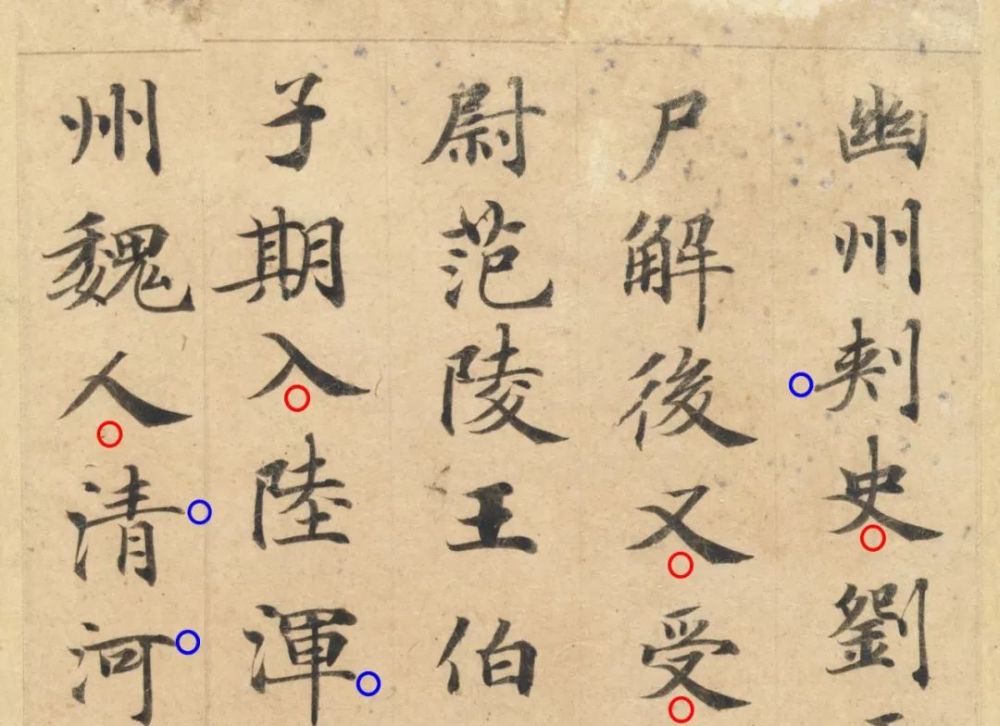 幽州刺史劉
尸解後又受
尉范陵王伯
子期入陸渾
州魏人清河